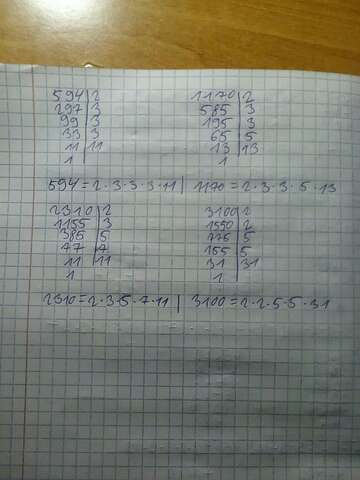 594|2 1170|2
297|3 585|3
99|3 195|3
33|3 65|5
11|11 13|13
1| 1|
594=2·3·3·3·11| 1170=2·3·3·5·13
2310|2 3100|2
1155|3 1550|2
385|5 775|5
77|7 155|5
11|11 31|31
1| 1|
2310=2·3·5·7·11| 3100=2·2·5·5·31